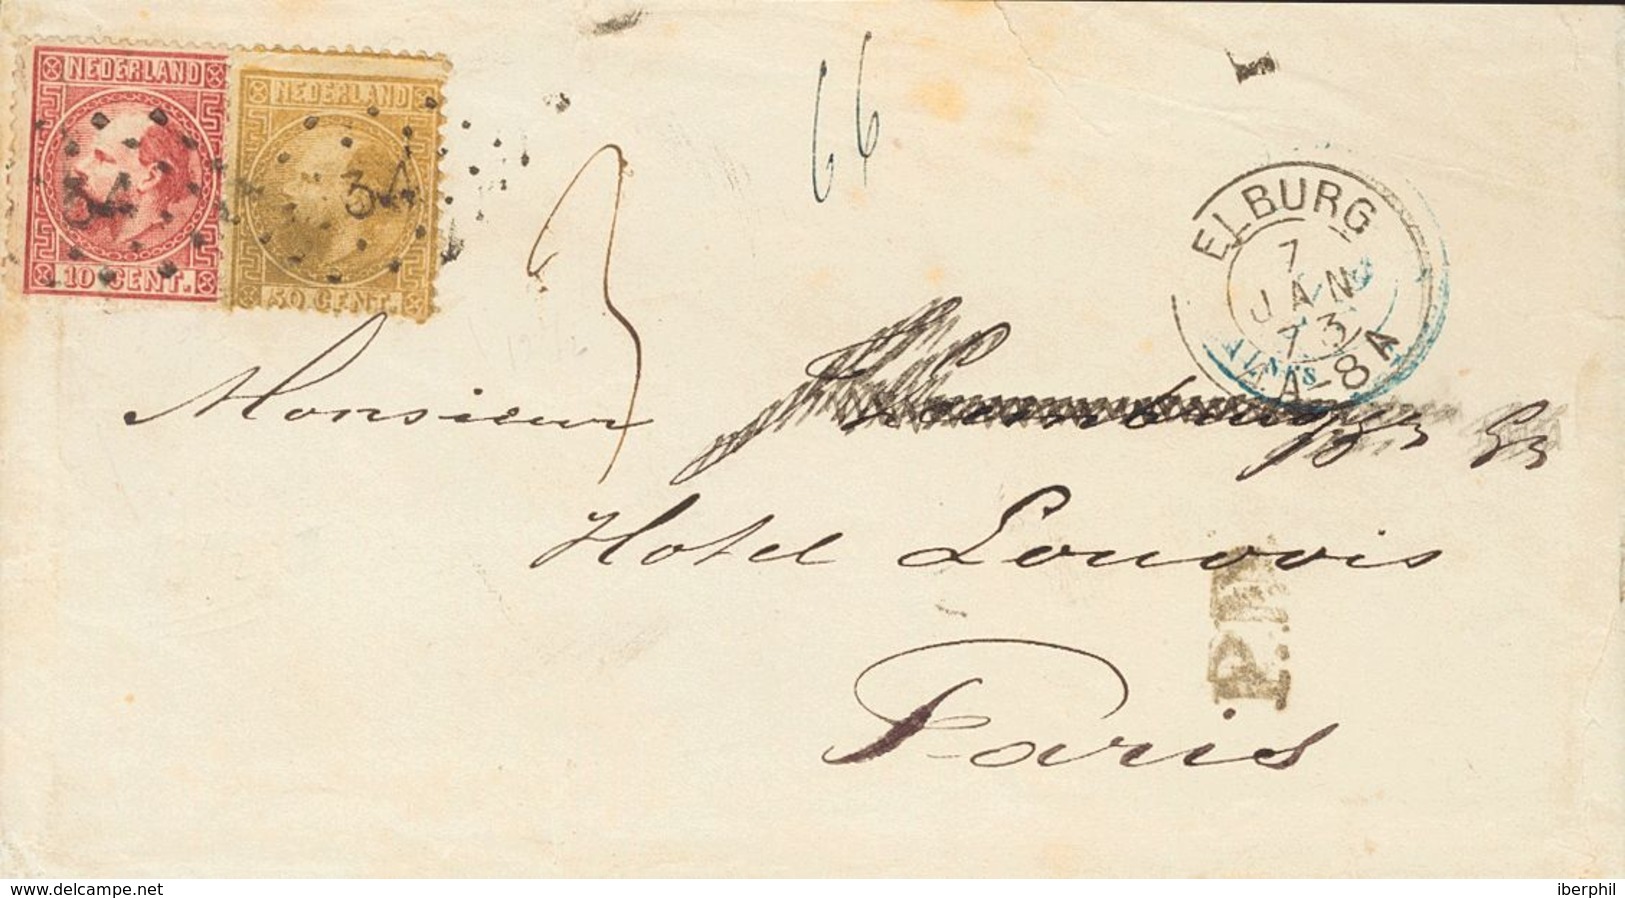 NEDERLAND
10 CENT.
34
NEDERLAND
50 CENT.
34
66
3
ELBURG
7
JAN
73
8A
Monsieur
Hotel Louvois
Paris
P.D.
www.delcampe.net
iberphil